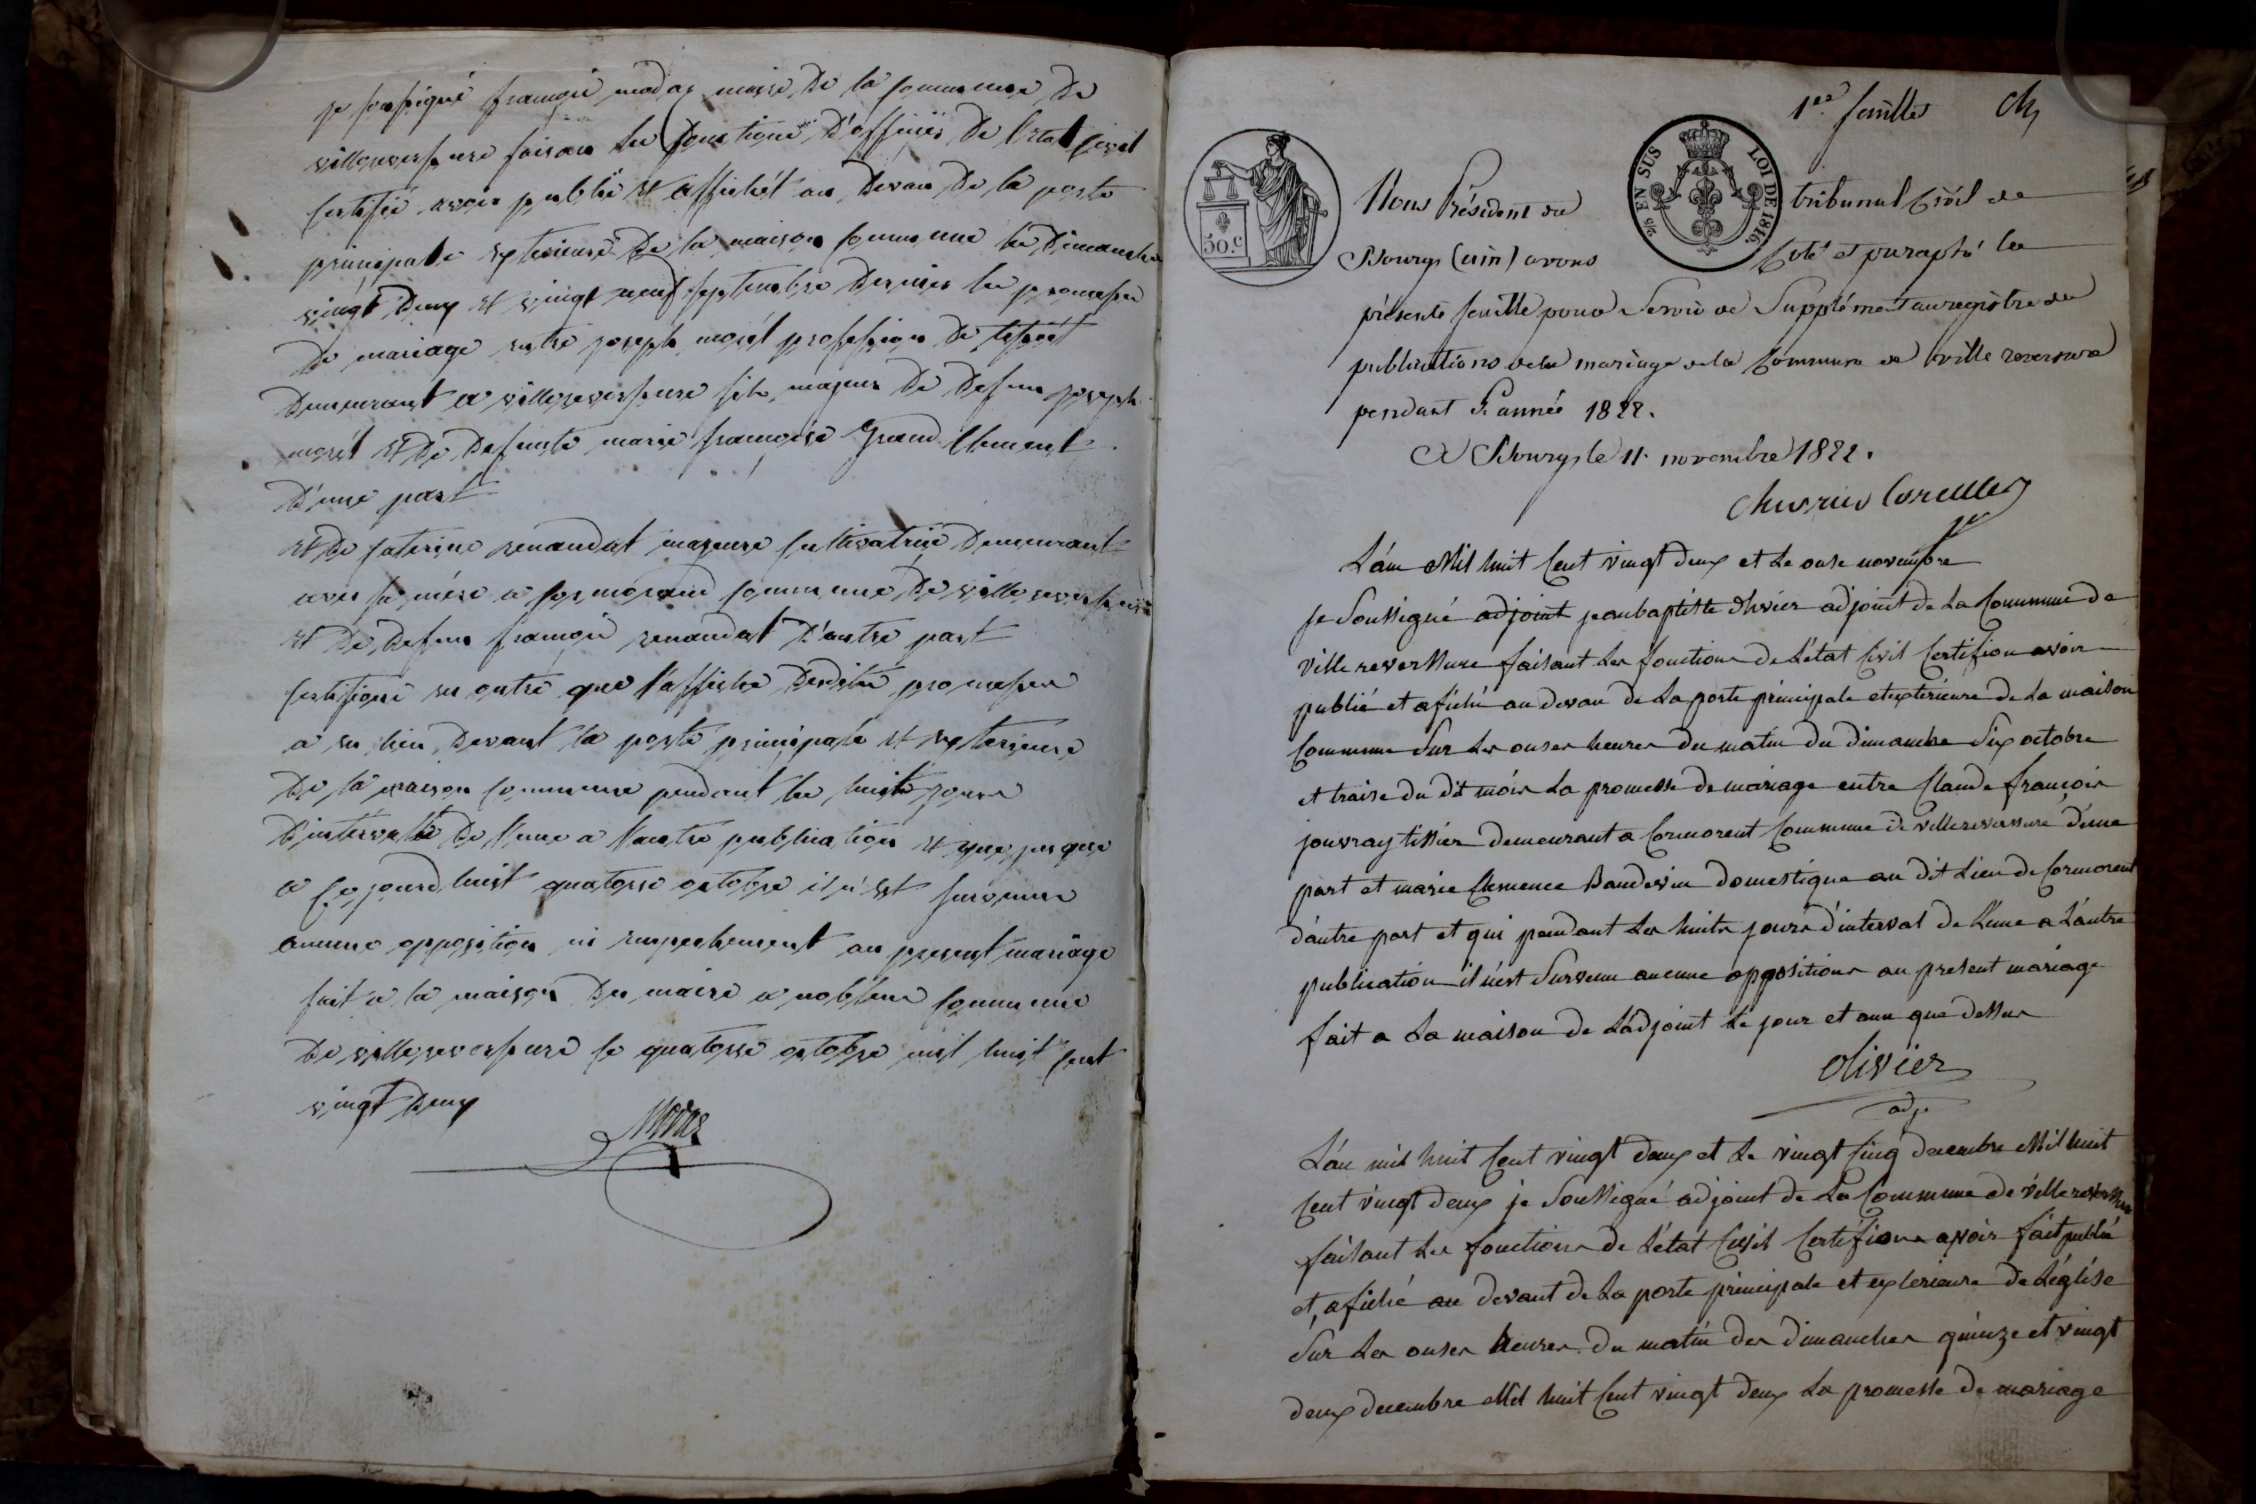 je soussigné françois modas maire de la commune de
villereversure faisan les fonctions d'officier de l'etat civil
certifie avoir publié et affichét au devan de la porte
principale exterieure de la maison commune les dimanche
vingt deux et vingt neuf septembre dernier les promesse
de mariage entre joseph morél profession de
demeurant a villereversure fils majeur de defun joseph
morél et de defunte marie françoise grand Clement
d'une part
et de caterine renaudat majeure cultivatrice demeurant
avec sa mére a cormorand commune de villereversure
et de defun françois renaudat d'autre part
certifions en outre que l'affiche desdites promesse
a eu lieu devant la porte principale et exterieure
de la maison commune pendant les huit jours
d'intervale de l'une a l'autre publication et que jusque
a ce jourd'huit quatorse octobre il n'est survenue
aucune opposition ni empechement au present mariage
fait a la maison du maire a noblens commune
de villereversure ce quatorse octobre mil huit cent
vingt deux
Modas
1ere feuille Ch
50.c
2/3 EN SUS LOI DE 1816.
Nous Président du tribunal Civil de
Bourg (ain) avons Coté et paraphé la
présente feuille pour Servir de Supplément au registre de
publications de mariage de la Commune de Villereversure
pendant l'année 1822.
A Bourg le 11. novembre 1822.
Chevrier Corcelles
L'an Mil huit Cent vingt deux et Le onse novembre
Je Soussigné adjoint jeanbaptiste Olivier adjoint de La Commune de
Villereversure faisant Les fonctions de L'état Civil Certifion avoir
publié et afiché au devan de La porte principale et extérieure de La maison
Commune Sur Les onses heures du matin du dimanche Six octobre
et traise du dit mois La promesse de mariage entre Claude françois
jouvray tissier demeurant a Cormorent Commune de Villereversure d'une
part et marie Clemence Baudevin domestique au dit Lieu de Cormorent
d'autre part et qui pendant Les huits jours d'interval de L'une a L'autre
publication il n'est Survenu aucune oppositions au present mariage
fait a La maison de L'adjoint Le jour et ann que dessus
Olivier
adj
L'an mil huit Cent vingt deux et Le vingt Cinq decembre Mil huit
Cent vingt deux je Soussigné adjoint de La Commune de villereversure
faisant Les fonctions de L'état Civil Certifions avoir fait publié
et, afiché au devant de La porte principale et exterieure de L'église
Sur Les onses heures du matin des dimanches quinze et vingt
deux decembre Mil huit Cent vingt deux La promesse de mariage